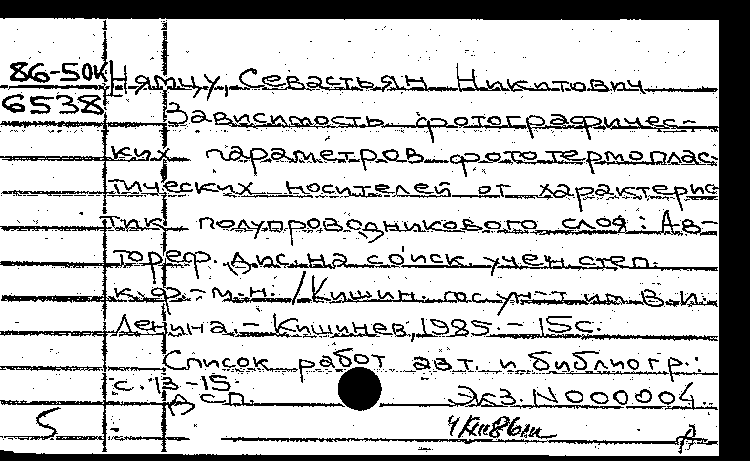 86-50К Нямцу, Севастьян Никитович
6538 Зависимость фотографичес-
ких параметров фототермоплас-
тических носителей от характерис-
тик полупроводникового слоя: Ав-
тореф. дис. на соиск. учен. степ.
к.ф.-м.н. / Кишин. гос. ун-т им В.И.
Ленина. - Кишинев, 1985. - 15с.
Список работ авт. и библиогр.:
с. 13-15.
ДСП. Экз. N 000004.
5
А